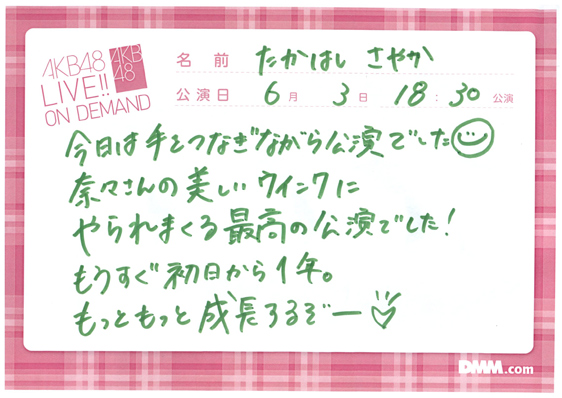 AKB48
LIVE!!
ON DEMAND
AKB
48
名前 たかはし さやか
公演日 6月 3日 18:30 公演
今日は手をつなぎながら公演でした
奈々さんの美しいウインクに
やられまくる最高の公演でした!
もうすぐ初日から1年。
もっともっと成長するぞー
DMM.com